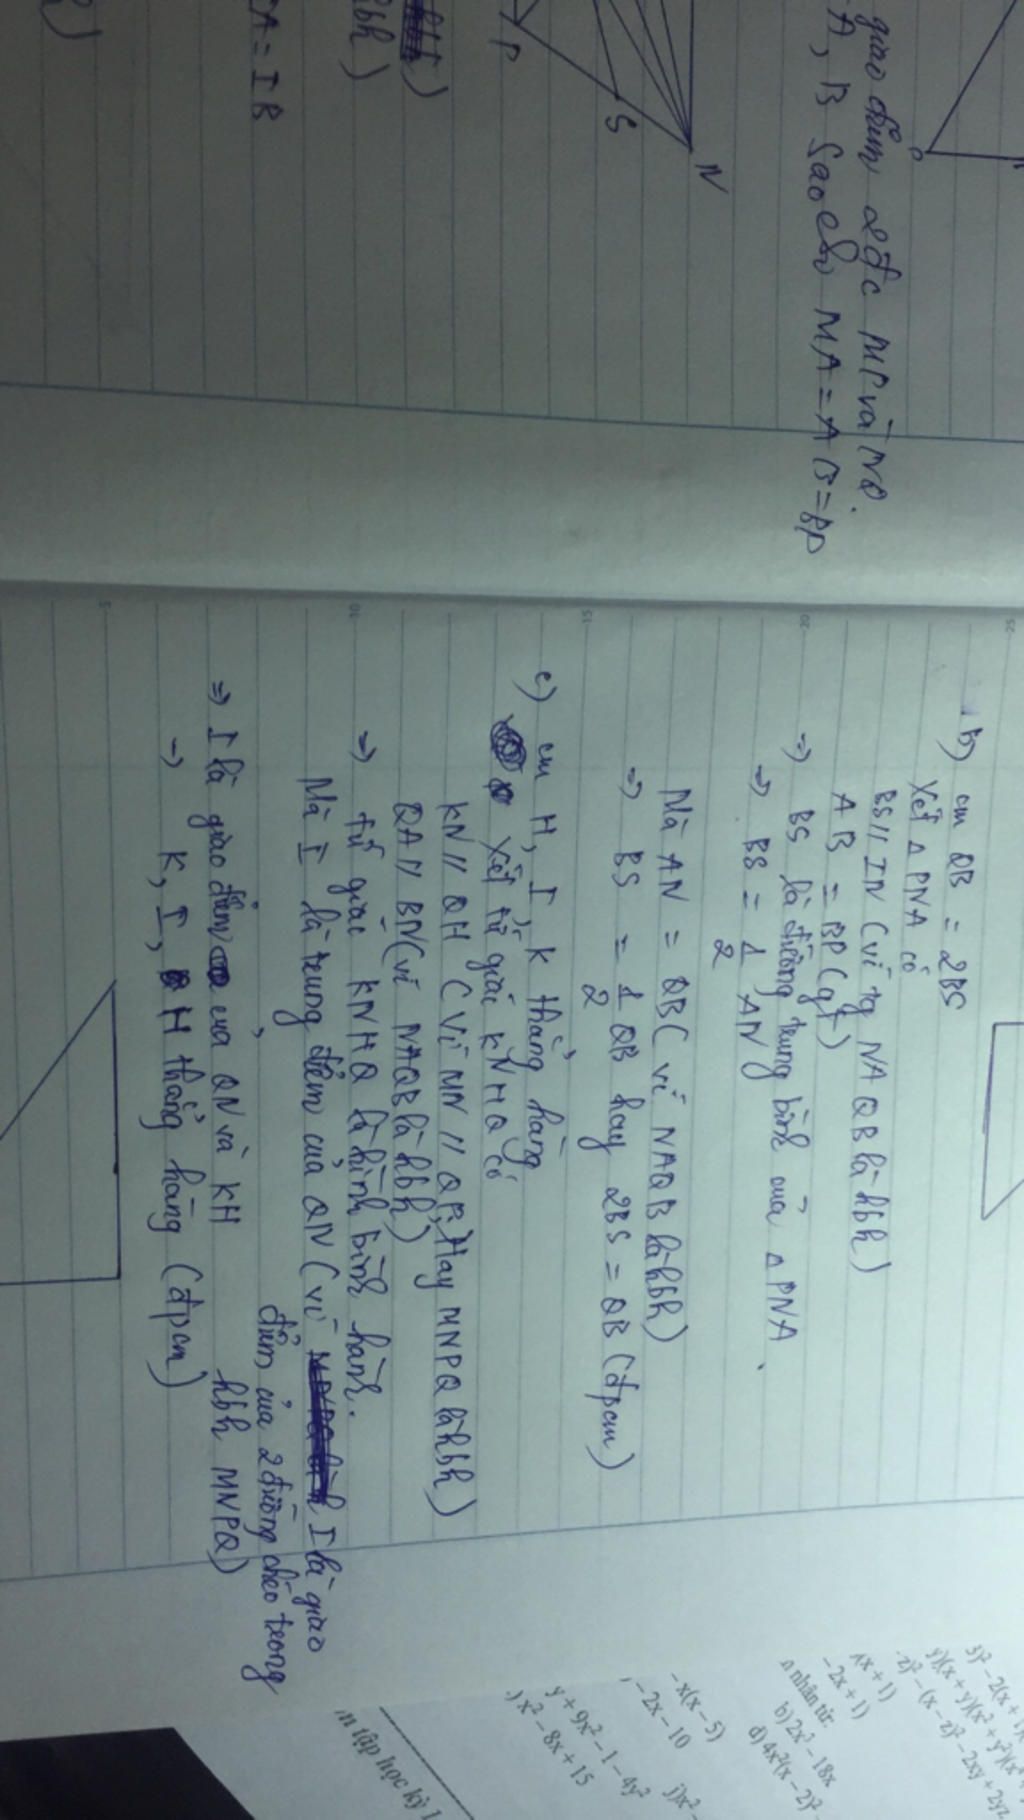 giao điểm 2 đc MP và NQ.
A, B sao cho MA = AB = BP
N
S
P
hbh)
IA = IB
b) cm QB = 2BS
Xét △ PNA có
BS // IN (vì tg NAQB là hbh)
AB = BP (gt)
=> BS là đường trung bình của △ PNA.
=> BS = 1/2 AN
Mà AN = QB (vì NAQB là hbh)
=> BS = 1/2 QB hay 2BS = QB (đpcm)
c) cm H, I, K thẳng hàng
Xét tứ giác KNHQ có
KN // QH (Vì MN // QP, Hay MNPQ là hbh)
QA // BN (vì NAQB là hbh)
=> tứ giác KNHQ là hình bình hành.
Mà I là trung điểm của QN (vì I là giao
điểm của 2 đường chéo trong
hbh MNPQ)
=> I là giao điểm của QN và KH
=> K, I, H thẳng hàng (đpcm)
5
10
15
20
25
3)² - 2(x + 1)
y)(x + y)(x² + y²)(x⁴
- z)² - (x - z)² - 2xy + 2yz
x + 1)
- 2x + 1)
nhân tử:
b) 2x³ - 18x
d) 4x²(x - 2)²
- x(x - 5)
- 2x - 10
j) x² -
y + 9x² - 1 - 4y²
) x² - 8x + 15
n tập học kỳ 1